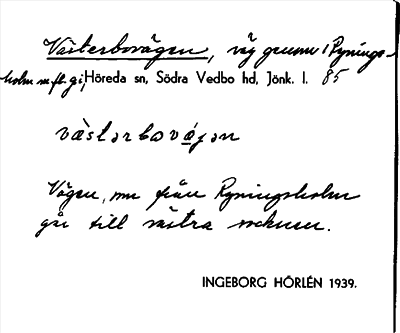 Västerbovägen, väg genom Rynings-
holm m. fl. gi, Höreda sn, Södra Vedbo hd, Jönk. l. 85
västərbovä́gən
Vägen, som från Ryningsholm
går till västra socknen.
INGEBORG HÖRLÉN 1939.